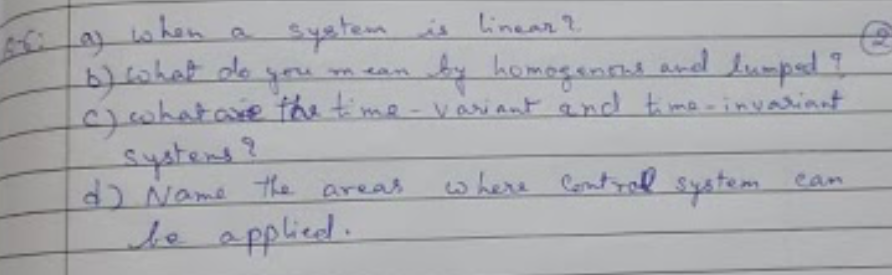 a) When a system is linear? (2)
b) What do you mean by homogenous and lumped?
c) what are the time-variant and time-invariant
systems?
d) Name the areas where Control system can
be applied.